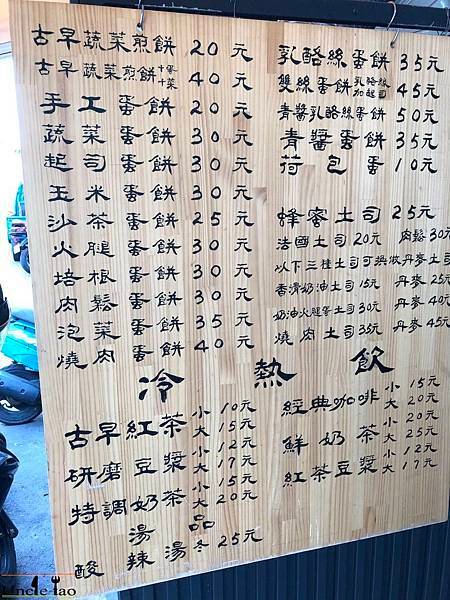 古早蔬菜煎餅 20元
古早蔬菜煎餅+蛋+菜 40元
手工蛋餅 20元
蔬菜蛋餅 30元
起司蛋餅 30元
玉米蛋餅 30元
沙茶蛋餅 25元
火腿蛋餅 30元
培根蛋餅 30元
肉鬆蛋餅 30元
泡菜蛋餅 35元
燒肉蛋餅 40元
乳酪絲蛋餅 35元
雙絲蛋餅 乳酪絲加起司 45元
青醬乳酪絲蛋餅 50元
青醬蛋餅 35元
荷包蛋 10元
蜂蜜土司 25元
法國土司 20元 肉鬆 30元
以下三種土司可換做丹麥土司
香滑奶油土司 15元 丹麥 25元
奶油火腿蛋土司 30元 丹麥 40元
燒肉土司 35元 丹麥 45元
冷熱飲
古早紅茶 小 10元 大 15元
研磨豆漿 小 12元 大 17元
特調奶茶 小 15元 大 20元
經典咖啡 小 15元 大 20元
鮮奶茶 小 20元 大 25元
紅茶豆漿 小 12元 大 17元
湯品
酸辣湯 冬 25元
Uncle Tao